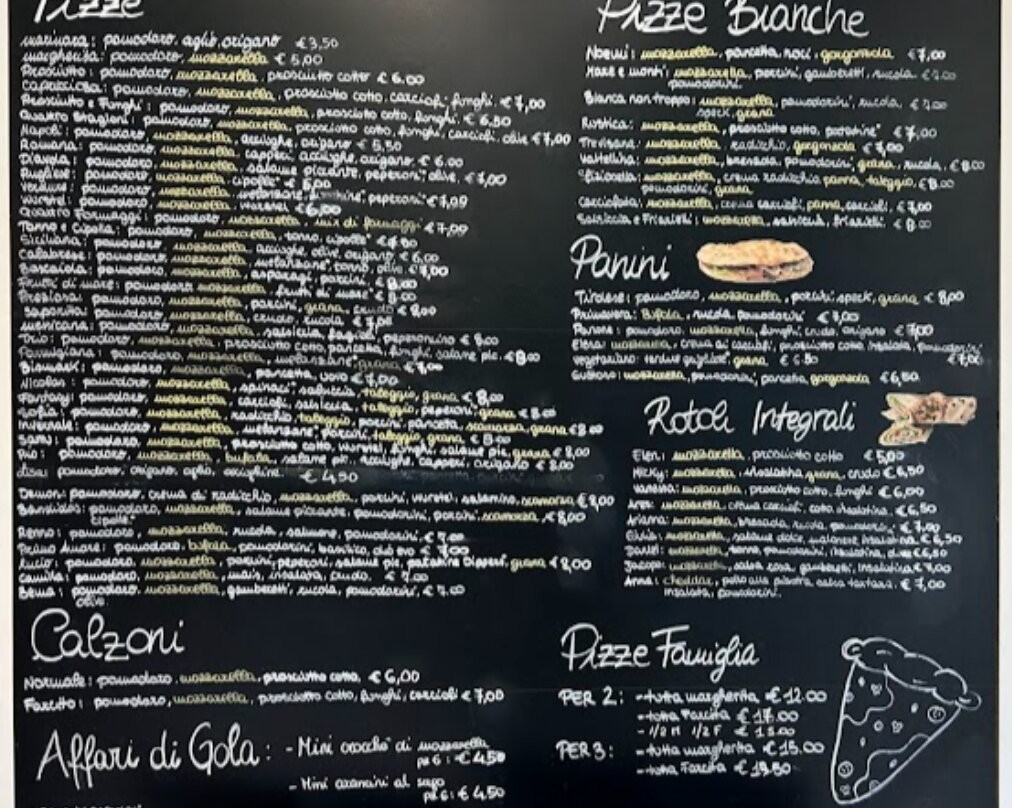 Pizze
marinara: pomodoro, aglio, origano €3,50
margherita: pomodoro, mozzarella €5,00
Prosciutto: pomodoro, mozzarella, prosciutto cotto €6.00
Capricciosa: pomodoro, mozzarella, prosciutto cotto, carciofi, funghi. €7,00
Prosciutto e Funghi: pomodoro, mozzarella, prosciutto cotto, funghi. €6,50
Quattro Stagioni: pomodoro, mozzarella, prosciutto cotto, funghi, carciofi, olive €7,00
Napoli: pomodoro, mozzarella, acciughe, origano €5,50
Romana: pomodoro, mozzarella, capperi, acciughe, origano. €6.00
Diavola: pomodoro, mozzarella, salame piccante, peperoni, olive, €7,00
Pugliese: pomodoro, mozzarella, cipolle €5,00
Verdure: pomodoro, mozzarella, melanzane, zucchine, peperoni
Wurstel: pomodoro, mozzarella, wurstel €6,00
Quattro Formaggi: pomodoro, mozzarella, mix di formaggi
Tonno e Cipolla: pomodoro, mozzarella, tonno, cipolle
Siciliana: pomodoro, mozzarella, acciughe, olive, origano, €6,00
Calabrese: pomodoro, mozzarella, melanzane, tonno, olive €7,00
Boscaiola: pomodoro, mozzarella, asparagi, porcini, €8,00
Frutti di mare: pomodoro, mozzarella, frutti di mare €8.00
Bresaola: pomodoro, mozzarella, porcini, grana, crudo €8,00
Saporita: pomodoro, mozzarella, crudo, rucola
messicana: pomodoro, mozzarella, salsiccia, fagioli, peperoncino €8.00
Trio: pomodoro, mozzarella, prosciutto cotto, pancetta, funghi, salame pic. €8.00
Parmigiana: pomodoro, mozzarella, melanzane, grana €7,00
Bismark: pomodoro, mozzarella, pancetta, uovo €7,00
Nicolas: pomodoro, mozzarella, spinaci, salsiccia, taleggio, grana €8,00
Fantasy: pomodoro, mozzarella, carciofi, salsiccia, taleggio, peperoni, grana €8.00
Sofia: pomodoro, mozzarella, radicchio, taleggio, porcini, pancetta, scamorza, grana €8.00
Invernale: pomodoro, mozzarella, melanzane, porcini, taleggio, grana €8.00
mozzarella, prosciutto cotto, wurstel, funghi, salame pic, grana €8,00
Pio: pomodoro, bufala, salame pic, acciughe, capperi, origano €8.00
pomodoro, origano, aglio, acciughine. €4,50
Demon: pomodoro, crema di radicchio, mozzarella, porcini, wurstel, salamino, scamorza €8,00
pomodoro, mozzarella, salame piccante, pomodorini, porcini, scamorza €8,00
cipolle
pomodoro, mozzarella, rucola, salmone, pomodorini
Primo Amore: pomodoro, bufala, pomodorini, basilico, olio evo €7.00
Lucio: pomodoro, mozzarella, porcini, peperoni, salame pic, patatine dippers, grana €8,00
Camilla: pomodoro, mozzarella, mais, insalata, crudo. €7.00
pomodoro, mozzarella, gamberetti, rucola, pomodorini, €7.00
olive
Calzoni
Normale: pomodoro, mozzarella, prosciutto cotto, €6,00
Farcito: pomodoro, mozzarella, prosciutto cotto, funghi, carciofi €7,00
Affari di Gola: - Mini crocchè di mozzarella
pz 6: €4,50
- Mini arancini al sugo
pz 6: €4,50
Pizze Bianche
Noemi: mozzarella, pancetta, noci, gorgonzola €7,00
Mare e monti: mozzarella, porcini, gamberetti, rucola
pomodorini.
Bianca non troppo: mozzarella, pomodorini, rucola, €7.00
speck, grana
Rustica: mozzarella, prosciutto cotto, patatine €7,00
Trevisana: mozzarella, radicchio, gorgonzola €7,00
Valtellina: mozzarella, bresaola, pomodorini, grana, rucola, €8.00
mozzarella, crema radicchio, panna, taleggio, €8.00
pomodorini, grana
Carciofata: mozzarella, crema carciofi, panna, carciofi, €7,00
Salsiccia e Friarielli: mozzarella, salsiccia, friarielli. €8.00
Panini
Tirolese: pomodoro, mozzarella, porcini, speck, grana €8,00
Primavera: Bufala, rucola, pomodorini €7,00
pomodoro, mozzarella, funghi, crudo, origano €7,00
Elena: mozzarella, crema ai carciofi, prosciutto cotto, insalata, pomodorini
€7,00
vegetariano: verdure grigliate, grana €6.50
Gustoso: mozzarella, pomodorini, pancetta, gorgonzola €6,50
Rotoli Integrali
Elen: mozzarella, prosciutto cotto €5,00
Micky: mozzarella, insalatina, grana, crudo €6,50
Vanessa: mozzarella, prosciutto cotto, funghi €6,00
mozzarella, crema carciofi, cotto, insalatina, €6,50
Ariana: mozzarella, bresaola, rucola, pomodoro, €7,00
mozzarella, salsa dolce, insalatina €6,50
mozzarella, tonno, pomodorini, insalatina, €6,50
Jacopo: mozzarella, salsa rosa, gamberetti, insalatina €7,00
Anna: cheddar, pollo alla piastra, salsa tartara, €7,00
insalata, pomodorini.
Pizze Famiglia
PER 2: - tutta margherita €12.00
- tutta Farcita €17.00
- 1/2 M 1/2 F €15.00
PER 3: - tutta margherita €15.00
- tutta Farcita €19.50